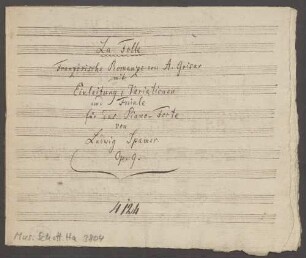 La Folle
Französische Romanze von A. Grisar
mit
Einleitung, Variationen
und Finale
für das Piano-Forte
von
Ludwig
Op. 9.
4124
Mus. Schott Ha 2804